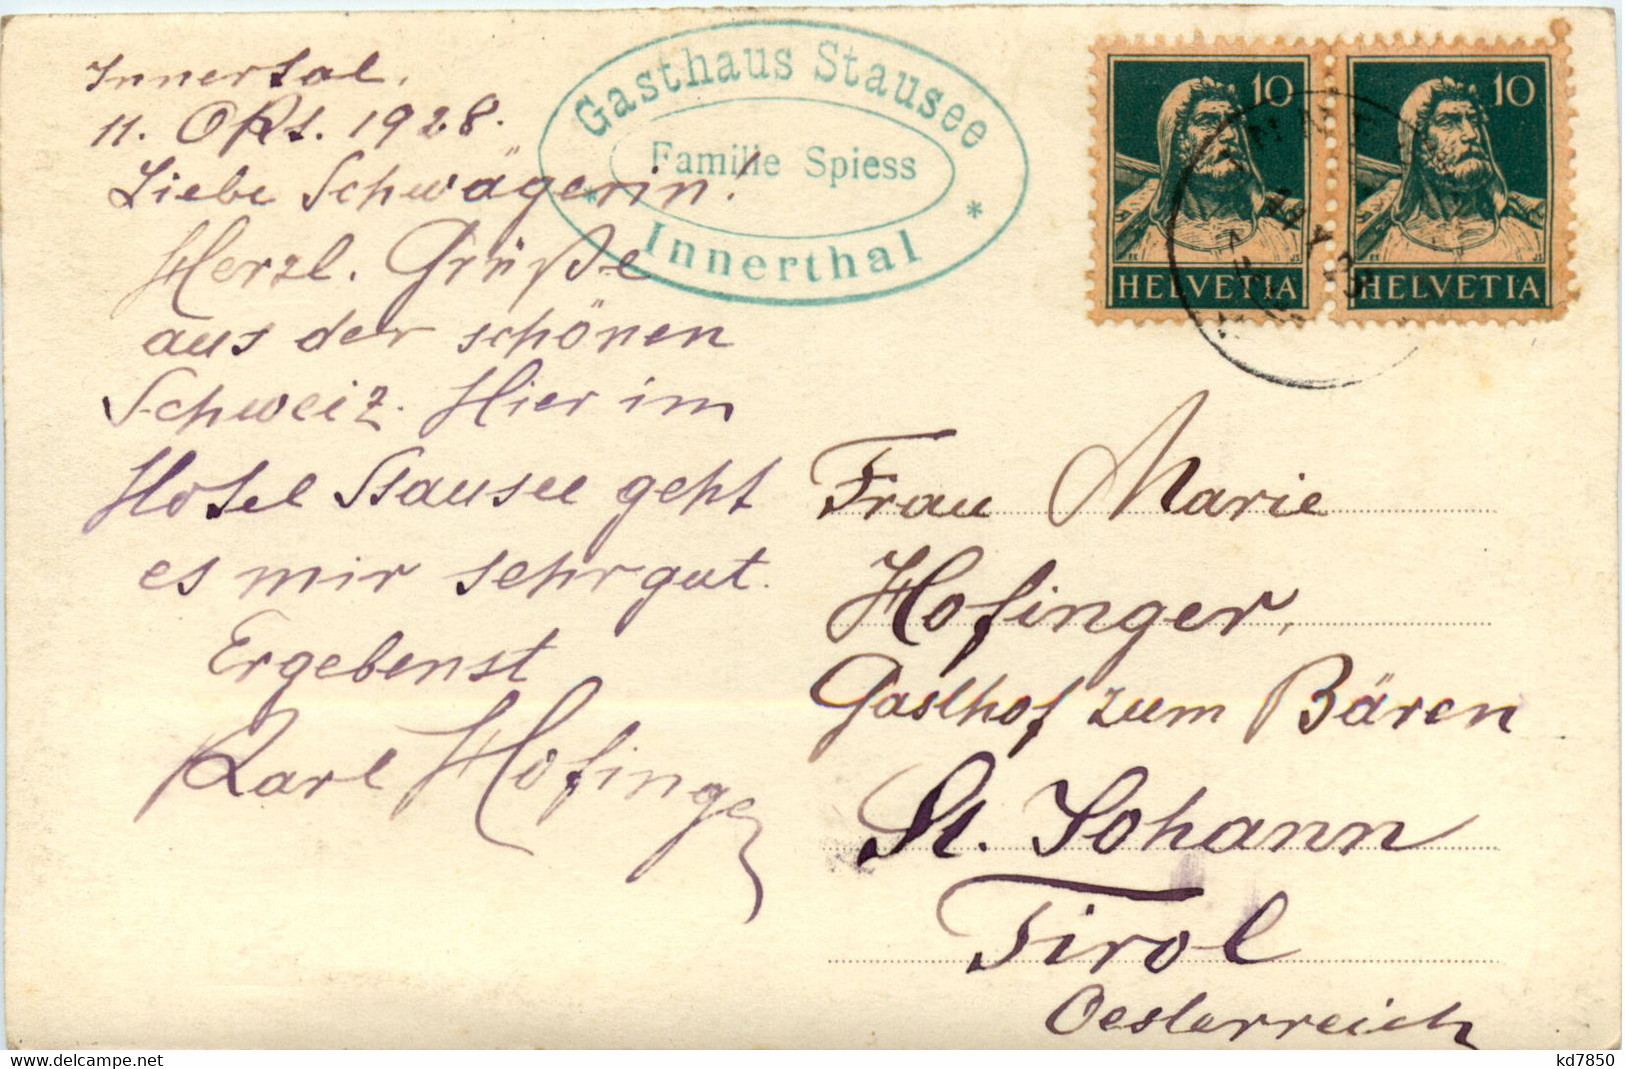 Innertal,
11. Okt. 1928.
Liebe Schwägerin!
Herzl. Grüße
aus der schönen
Schweiz. Hier im
Hotel Stausee geht
es mir sehr gut.
Ergebenst
Karl Hofinger
Gasthaus Stausee
Familie Spiess
* Innerthal *
10 10
HELVETIA HELVETIA
Frau Marie
Hofinger,
Gasthof zum Bären
St. Johann
Tirol
Oesterreich
delcampe.net
kd7850